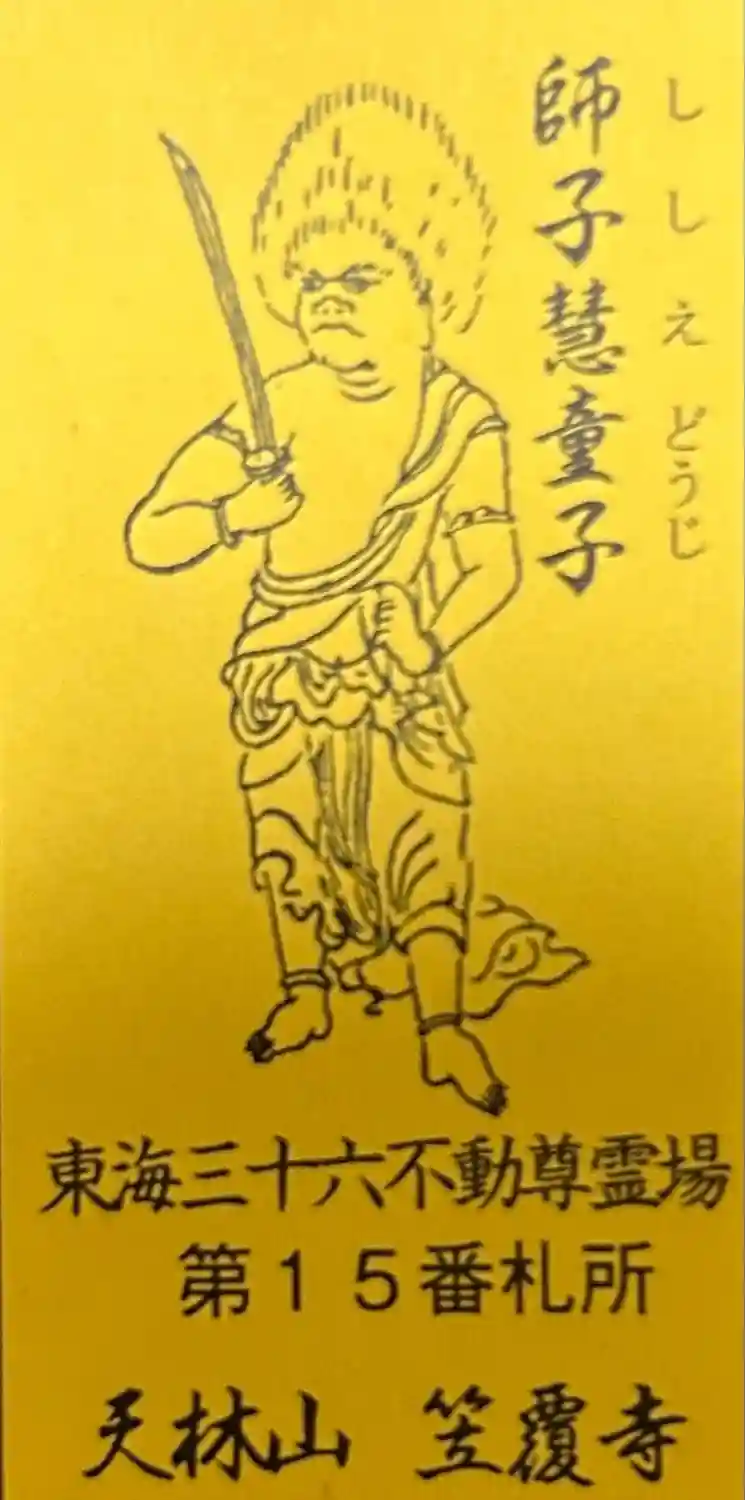 ししえどうじ
師子慧童子
東海三十六不動尊霊場
第１５番札所
天林山 笠覆寺